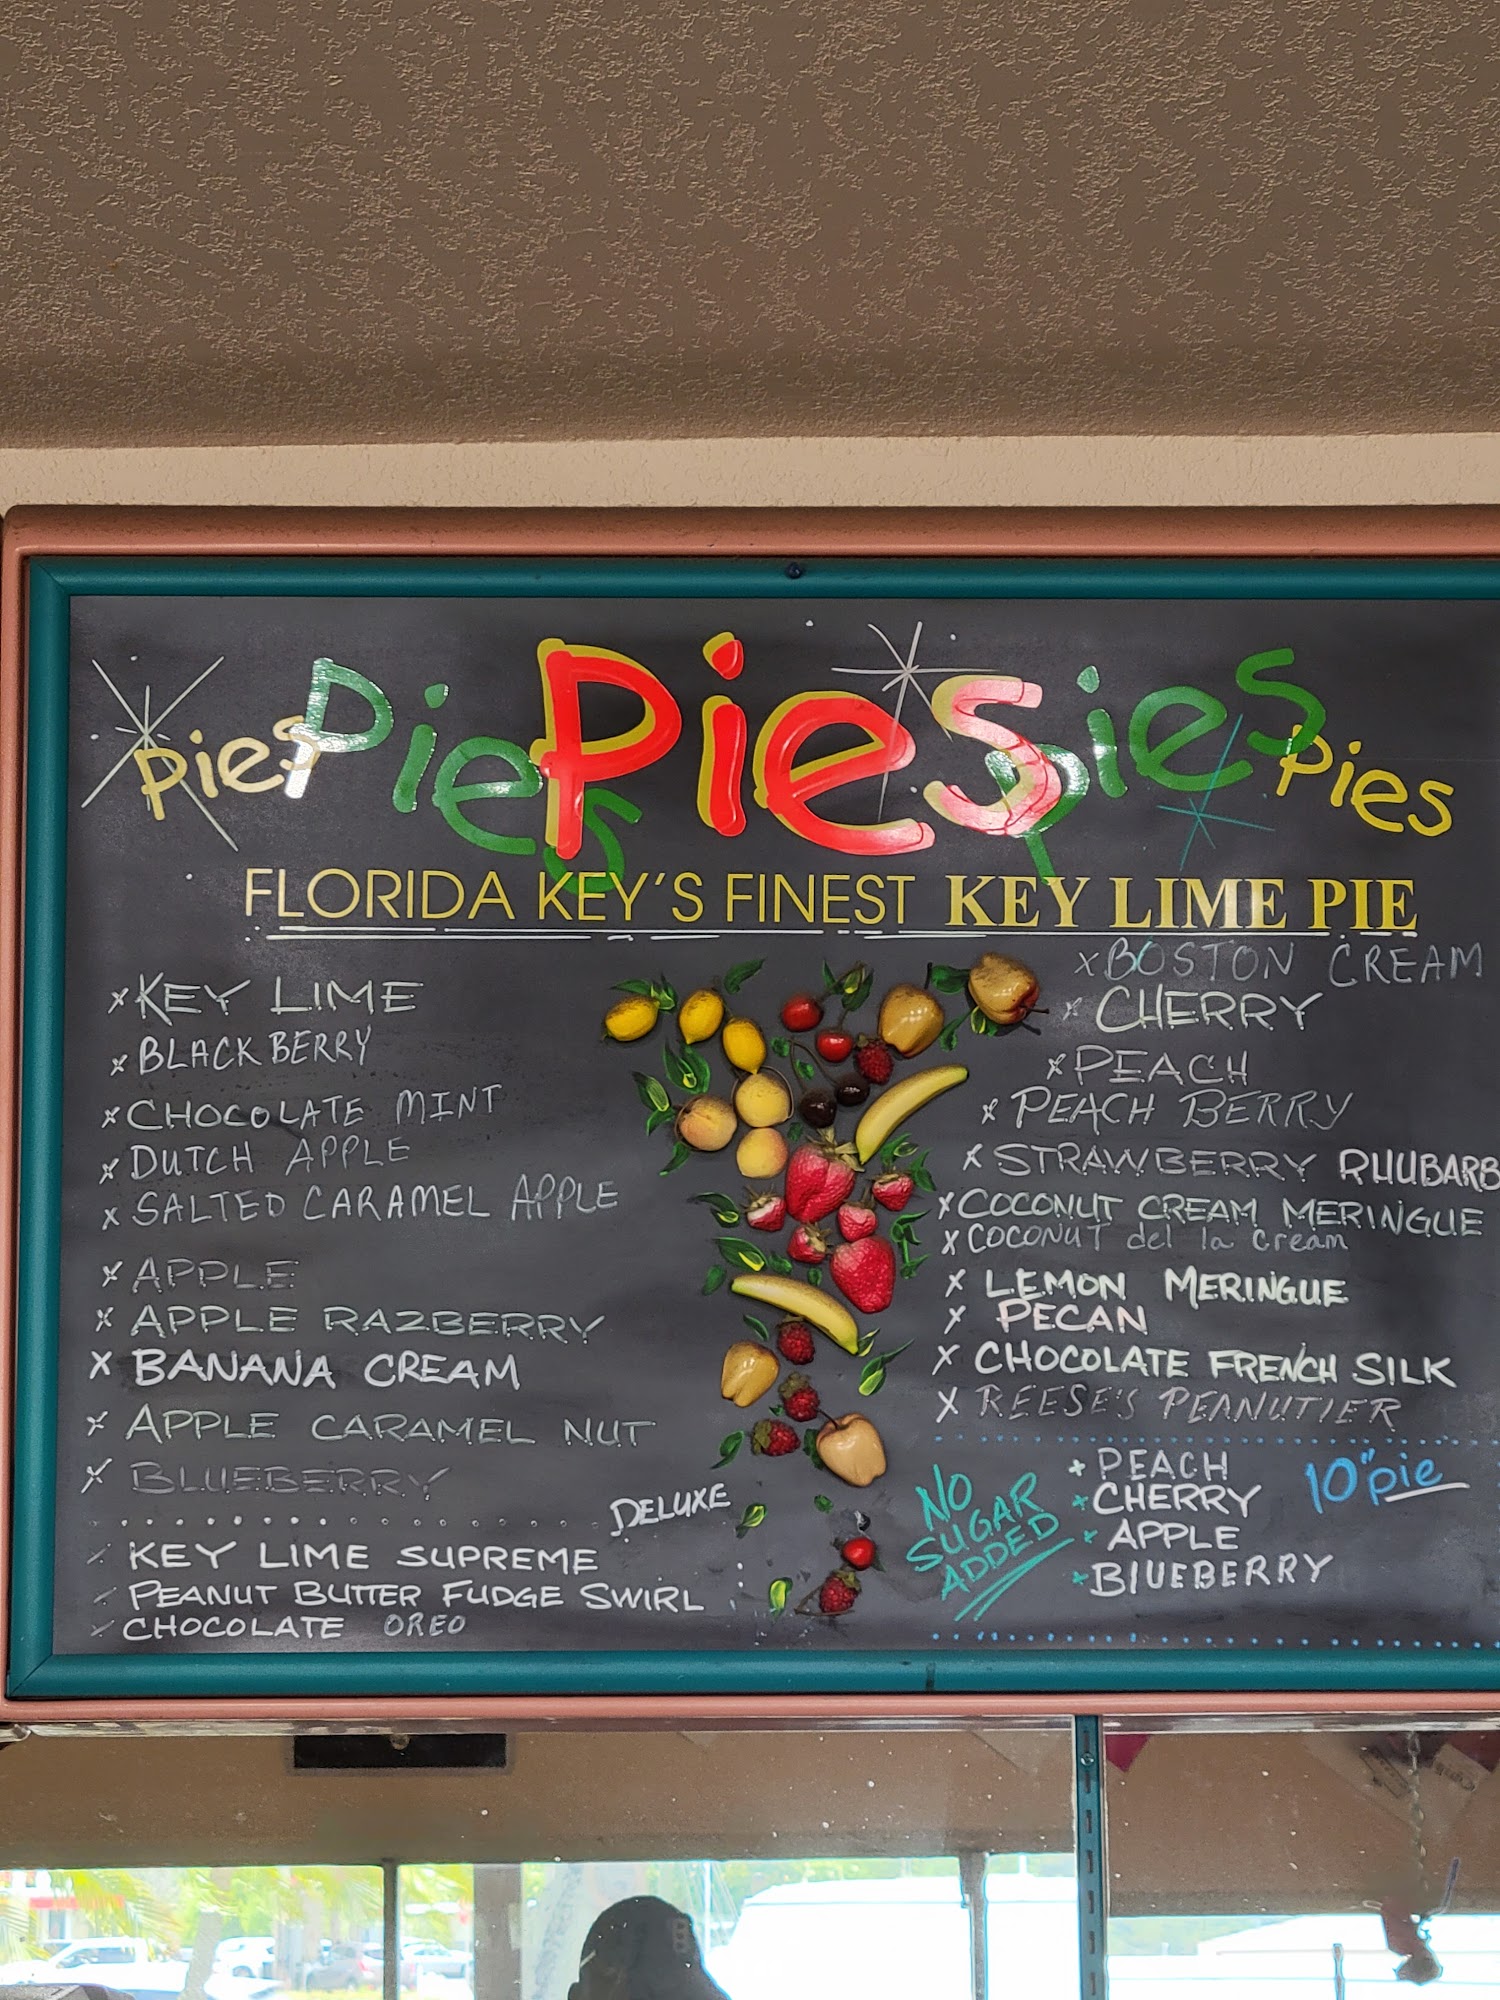 Pies Pies Pies Pies Pies
FLORIDA KEY'S FINEST KEY LIME PIE
x KEY LIME
x BLACKBERRY
x CHOCOLATE MINT
x DUTCH APPLE
x SALTED CARAMEL APPLE
x APPLE
x APPLE RAZBERRY
x BANANA CREAM
x APPLE CARAMEL NUT
x BLUEBERRY
DELUXE
KEY LIME SUPREME
PEANUT BUTTER FUDGE SWIRL
CHOCOLATE OREO
x BOSTON CREAM
x CHERRY
x PEACH
x PEACH BERRY
x STRAWBERRY RHUBARB
x COCONUT CREAM MERINGUE
x COCONUT del la cream
x LEMON MERINGUE
x PECAN
x CHOCOLATE FRENCH SILK
x REESE'S PEANUTIER
NO
SUGAR
ADDED
+ PEACH
+ CHERRY
+ APPLE
+ BLUEBERRY
10" pie